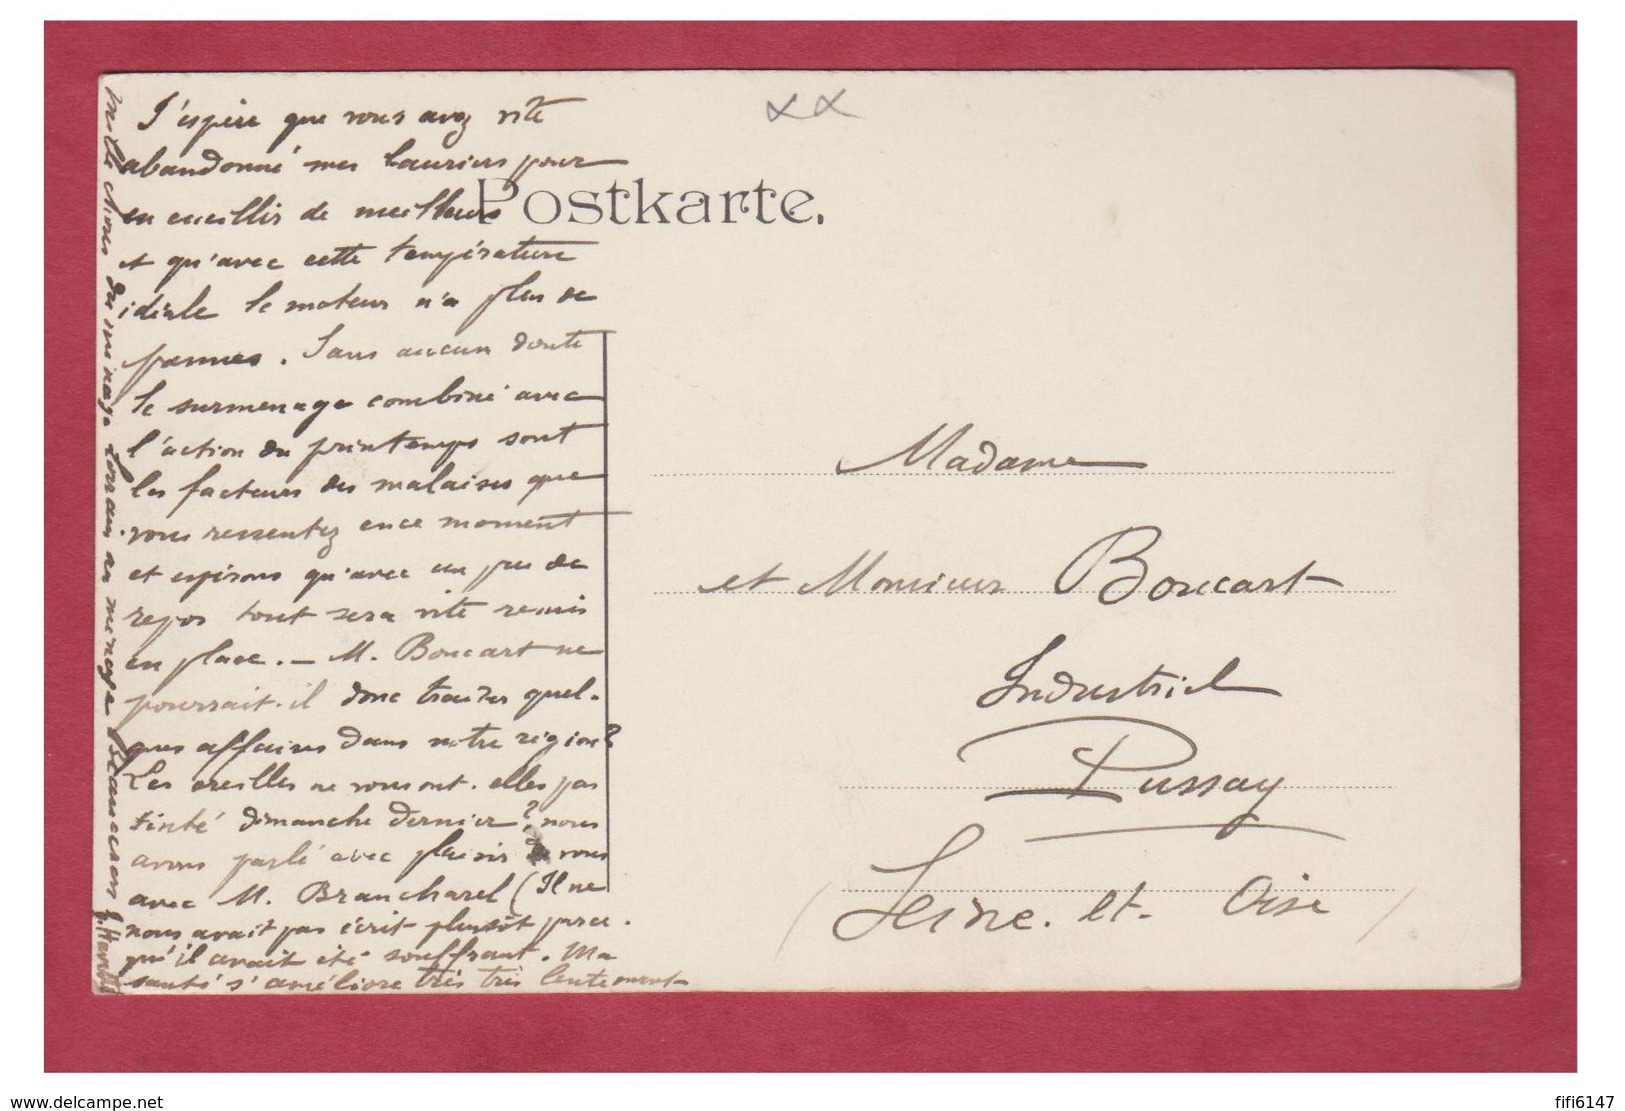 J'espère que vous avez vite
abandonné mes lauriers pour
en cueillir de meilleurs
et qu'avec cette température
idéale le moteur n'a plus de
pannes. Sans aucun doute
le surmenage combiné avec
l'action du printemps sont
les facteurs des malaises que
vous ressentez en ce moment
et espérons qu'avec un peu de
repos tout sera vite remis
en place. — M. Boucart ne
pourrait-il donc traiter quel-
ques affaires dans notre région?
Les oreilles ne vous ont-elles pas
tinté dimanche dernier? nous
avons parlé avec plaisir de vous
avec M. Brancharel (Il ne
nous avait pas écrit plustôt parce
qu'il avait été souffrant. Ma
santé s'améliore très très lentement
Mille choses du ménage Lorrain au ménage Beauceron
XX
Postkarte.
Madame
et Monsieur Boucart
Industriel
Pussay
(Seine-et-Oise)
delcampe.net
fifi6147